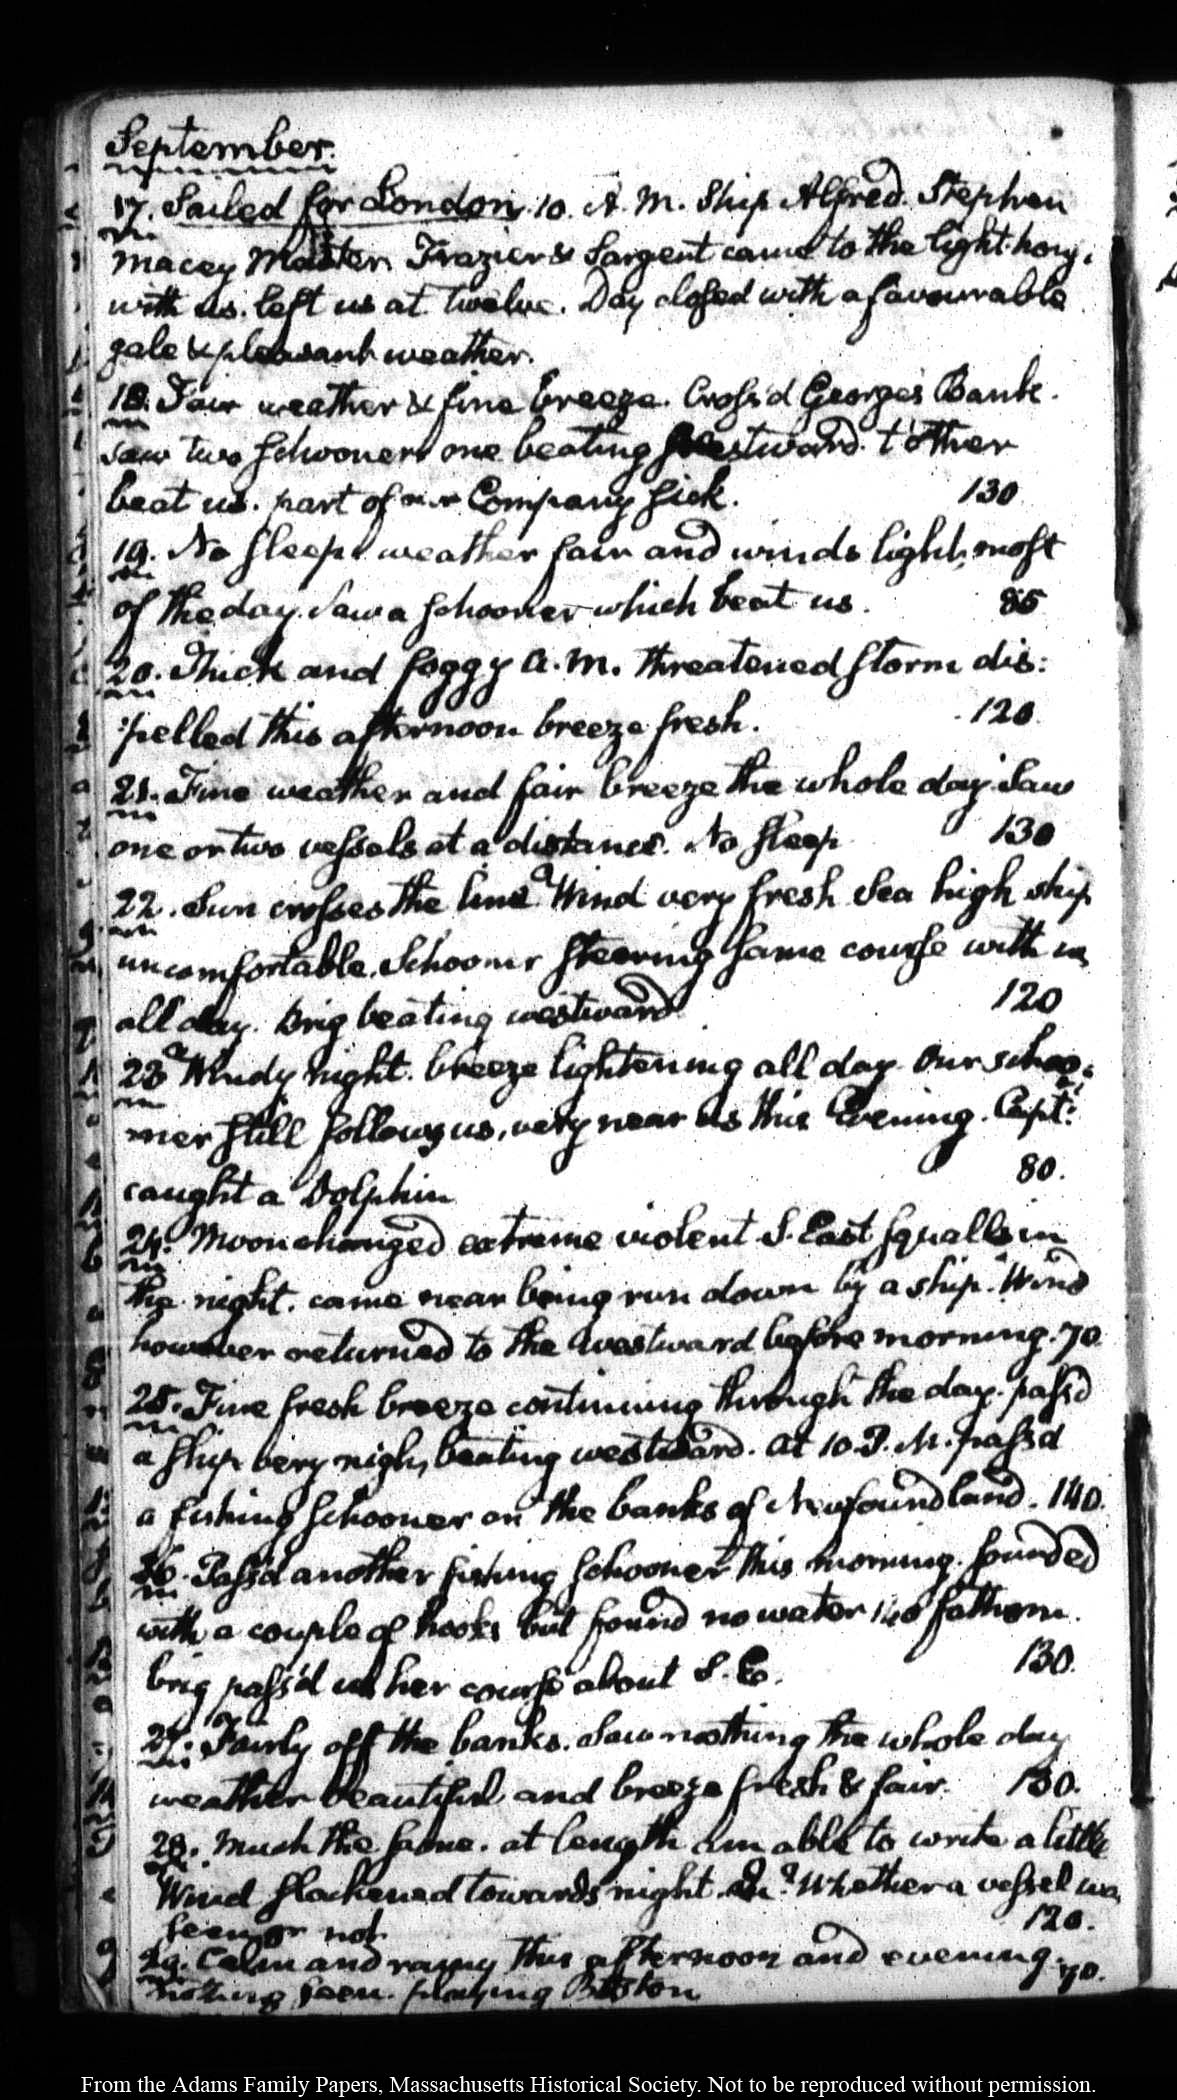 September.
17. Sailed for London. 10. A. M. Ship Alfred. Stephen
Macey Master. Frazier & Sargent came to the light hous,
with us. left us at twelve. Day closed with a favourable
gale & pleasant weather.
18. Fair weather & fine breeze. Cross'd Georges Bank.
saw two schooners one beating westward. t'other
beat us. part of our Company sick. 130
19. No sleep. weather fair and winds light, most
of the day. Saw a schooner which beat us. 85
20. Thick and foggy A. M. threatened storm dis:
:pelled this afternoon breeze fresh. 120
21. Fine weather and fair breeze the whole day Saw
one or two vessels at a distance. No sleep 130
22. Sun crosses the line. Wind very fresh Sea high ship
uncomfortable. Schooner steering same course with us
all day. Brig beating westward 120
23 Windy night. breeze lightening all day. Our schoo:
ner still follows us, very near us this Evening. Capt:
caught a Dolphin 80.
24. Moon changed extreme violent S. East squalls in
the night. came near being run down by a ship. Wind
however returned to the westward before morning. 70
25. Fine fresh breeze continuing through the day. pass'd
a ship very nigh, beating westward. at 10. P. M. pass'd
a fishing schooner on the banks of Newfoundland. 140.
26. Pass'd another fishing schooner this morning. sounded
with a couple of hooks but found no water 140 fathom.
brig pass'd us her course about S. E. 130.
27. Fairly off the banks. Saw nothing the whole day
weather beautiful and breeze fresh & fair. 130.
28. Much the same. at length am able to write a little
Wind slackened towards night. Qu? Whether a vessel was
seen or not 120.
29. Calm and rainy this afternoon and evening.
nothing seen. playing Boston 70.
From the Adams Family Papers, Massachusetts Historical Society. Not to be reproduced without permission.